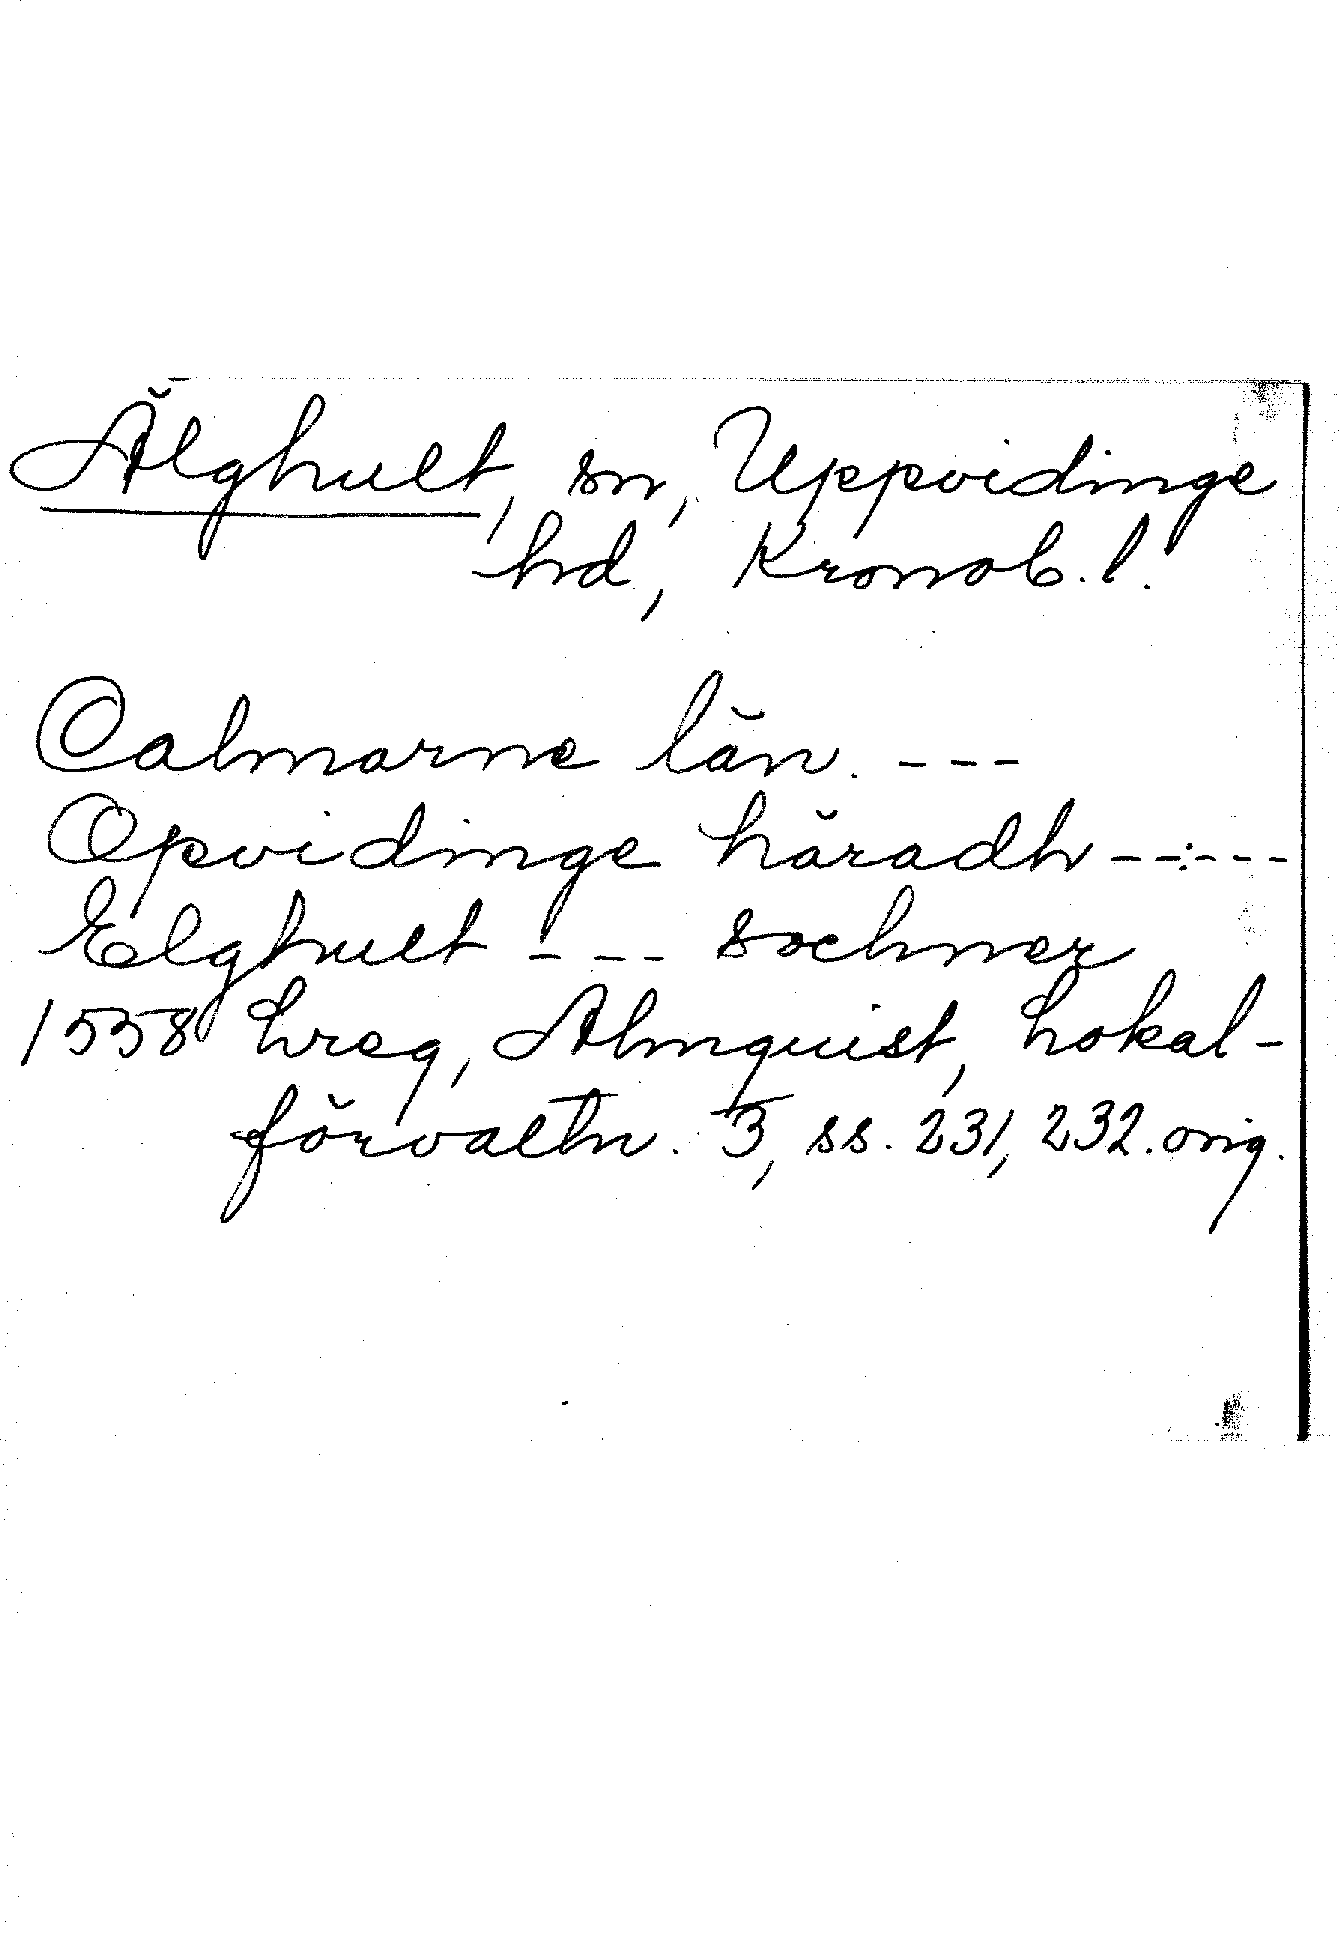 Älghult, sn, Uppvidinge
hd, Kronob. l.
Calmarne län. ---
Opvidinge häradh -----
Elghult --- sochner
1558 Lreg, Almquist, Lokal-
förvaltn. 3, ss. 231, 232. orig.